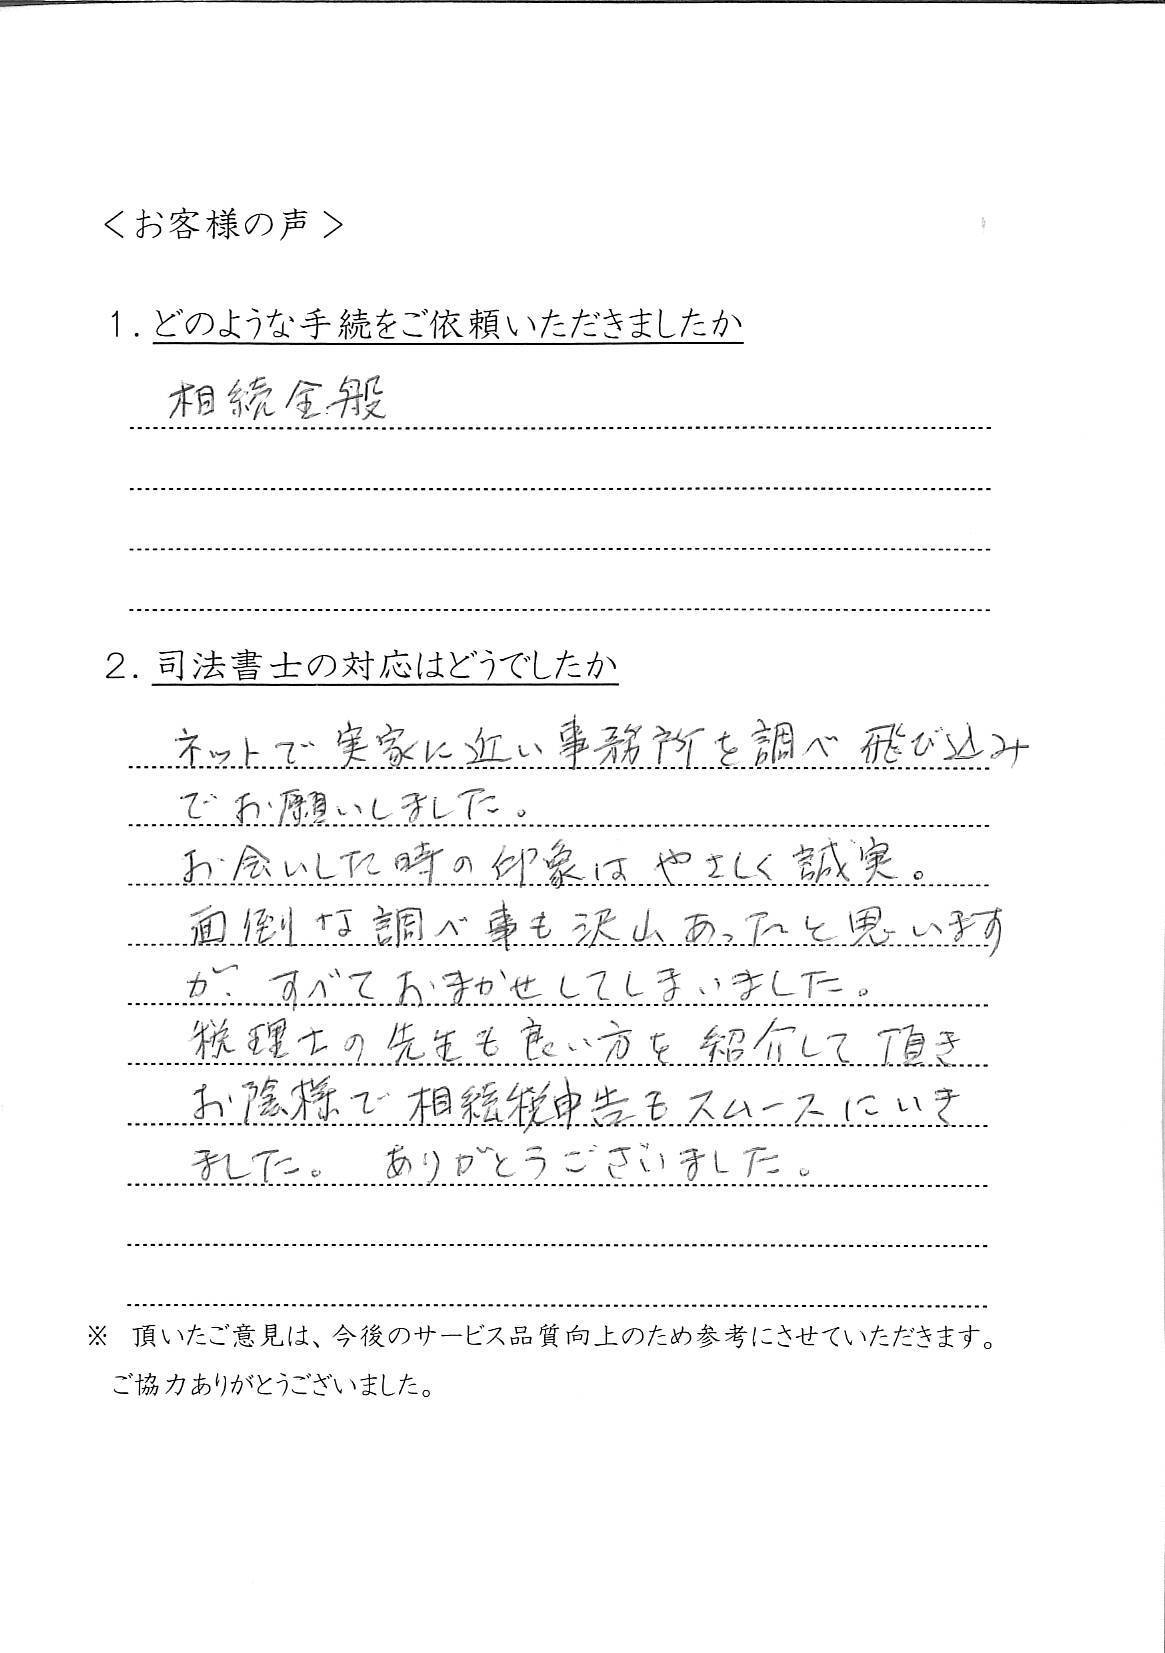 ＜お客様の声＞
1．どのような手続をご依頼いただきましたか
相続全般
2．司法書士の対応はどうでしたか
ネットで実家に近い事務所を調べ飛び込み
でお願いしました。
お会いした時の印象はやさしく誠実。
面倒な調べ事も沢山あったと思います
が、すべておまかせしてしまいました。
税理士の先生も良い方を紹介して頂き
お陰様で相続税申告もスムースにいき
ました。 ありがとうございました。
※ 頂いたご意見は、今後のサービス品質向上のため参考にさせていただきます。
ご協力ありがとうございました。